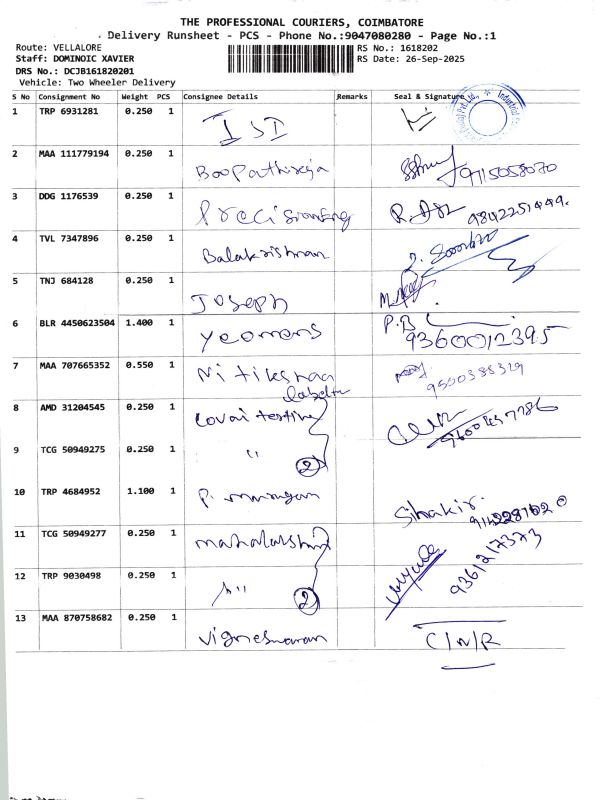 THE PROFESSIONAL COURIERS, COIMBATORE
Delivery Runsheet - PCS - Phone No.:9047080280 - Page No.:1
Route: VELLALORE RS No.: 1618202
Staff: DOMINOIC XAVIER RS Date: 26-Sep-2025
DRS No.: DCJB161820201
Vehicle: Two Wheeler Delivery
S No Consignment No Weight PCS Consignee Details Remarks Seal & Signature
1 TRP 6931281 0.250 1 ISI
2 MAA 111779194 0.250 1 Boopathiraja 9115058070
3 DDG 1176539 0.250 1 Precision Eng
4 TVL 7347896 0.250 1 Balakrishnan
5 TNJ 684128 0.250 1 Joseph
6 BLR 4450623504 1.400 1 Yeomens P.B 9360012395
7 MAA 707665352 0.550 1 Nitikshaa 9500388329
8 AMD 31204545 0.250 1 Covai testing
9 TCG 50949275 0.250 1 " 2
10 TRP 4684952 1.100 1 P. murugan Shakir.
11 TCG 50949277 0.250 1 mahalakshmi 9361217373
12 TRP 9030498 0.250 1 " 2
13 MAA 870758682 0.250 1 Vigneswaran C/N/R